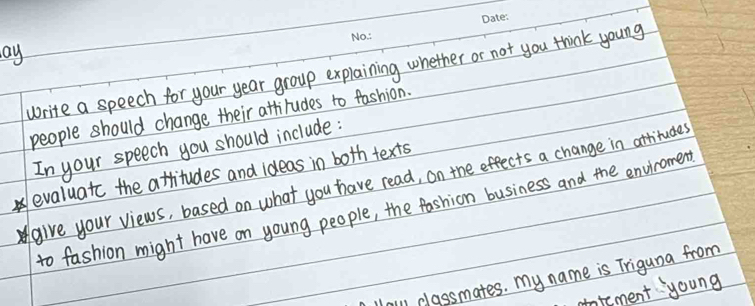 Date:
No.:
ay
write a speech for your year group explaining whether or not you think young
people should change their attitudes to fashion.
In your speech you should include:
* evaluate the attitudes and ideas in both texts
* give your views, based on what you have read, on the effects a change in attitudes
to fashion might have on young people, the fashion business and the enviroment.
classmates. My name is Triguna from
young